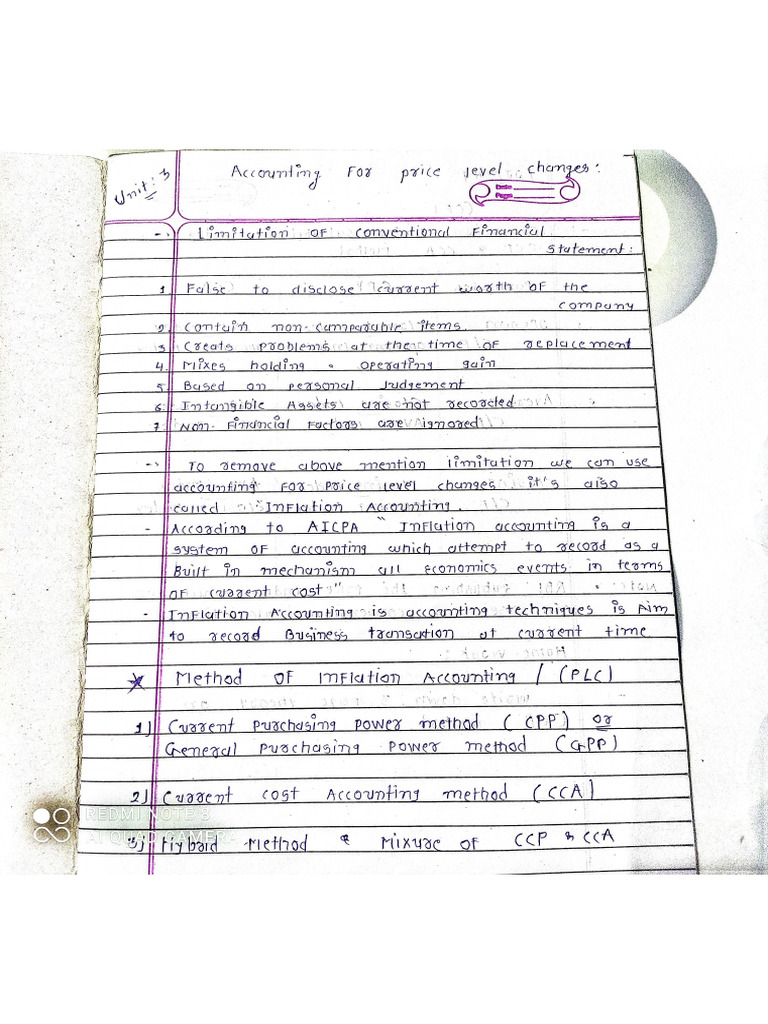 Unit: 3
Accounting For price level changes:
Date
Page
Limitation OF conventional Financial
Statement:
1 False to disclose current worth OF the
company
2. contain non-comparable items.
3 Creats problems at the time OF replacement
4. Mixes holding & operating gain
5. Based on personal Judgement
6. Intangible Assets are not recorded
7. Non-Financial Factors are ignored
To remove above mention limitation we can use
accounting FOR price level changes it's also
called "InFlation Accounting.
- According to AICPA "InFlation accounting is a
system OF accounting which attempt to record as a
Built in mechanism all Economics events in terms
OF current cost"
- InFlation Accounting is accounting techniques is Aim
to record Business transation at current time
Method OF InFlation Accounting / (PLC)
1) Current purchasing power method (CPP) or
General purchasing power method (GPP)
2) Current cost Accounting method (CCA)
3) Hybrid Method & Mixure OF CCP & CCA
REDMI NOTE 8
AI QUAD CAMERA